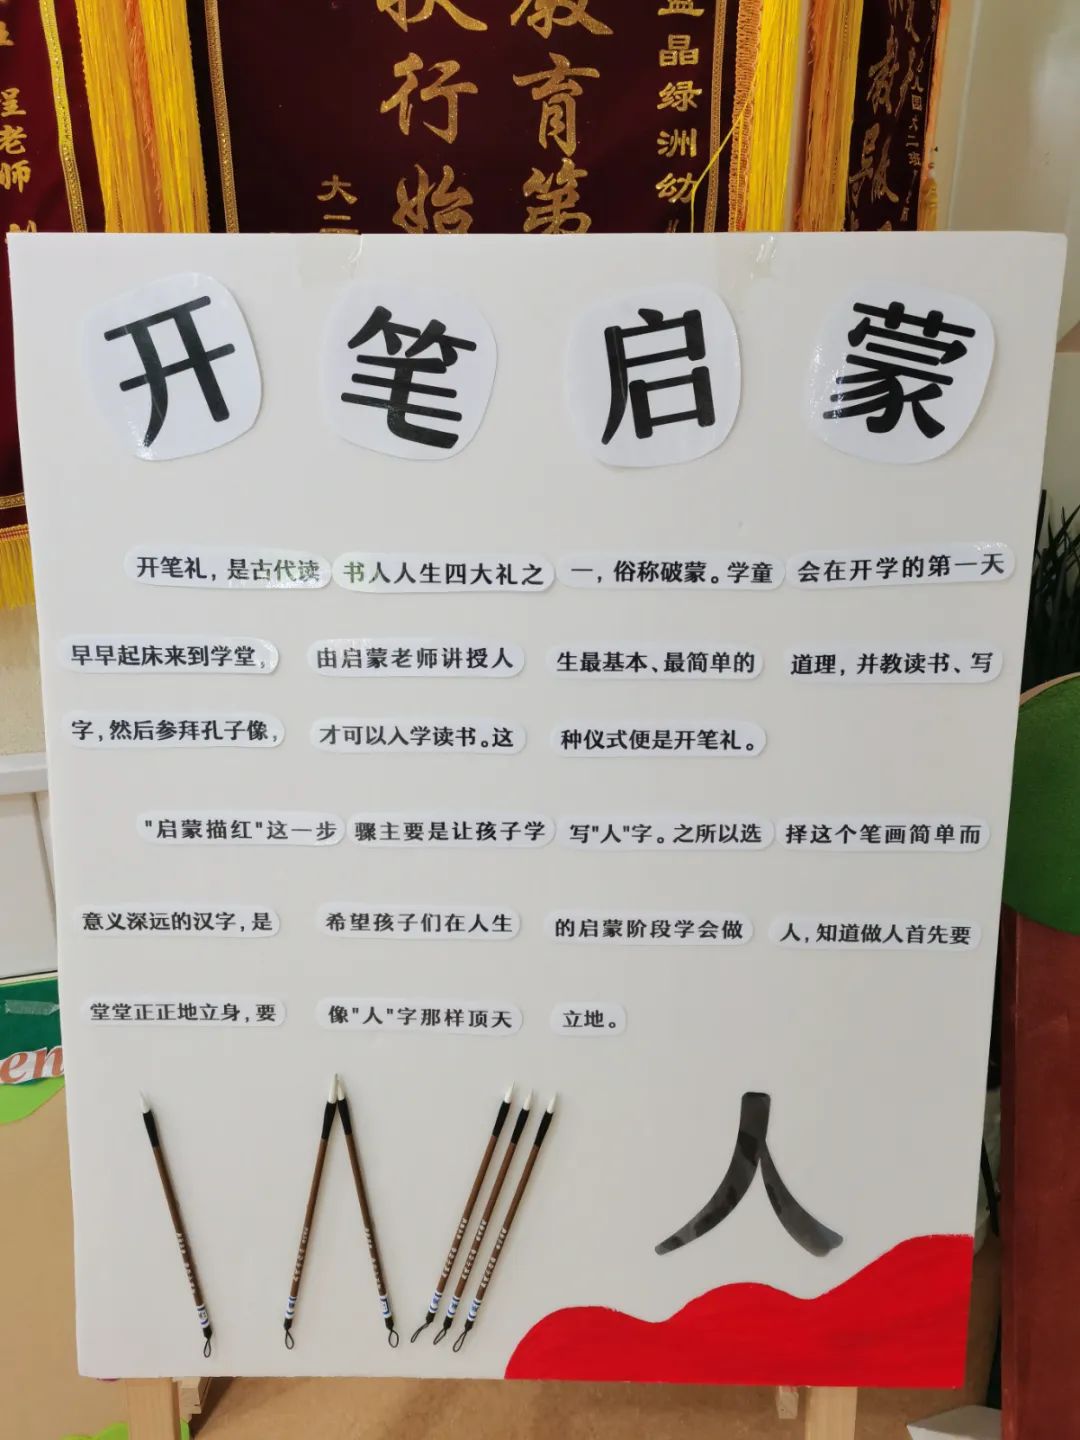 呈老师
大二
状行始
教育第
益晶绿洲幼
大二班
开笔启蒙
开笔礼，是古代读书人人生四大礼之一，俗称破蒙。学童会在开学的第一天
早早起床来到学堂，由启蒙老师讲授人生最基本、最简单的道理，并教读书、写
字，然后参拜孔子像，才可以入学读书。这种仪式便是开笔礼。
"启蒙描红"这一步骤主要是让孩子学写"人"字。之所以选择这个笔画简单而
意义深远的汉字，是希望孩子们在人生的启蒙阶段学会做人，知道做人首先要
堂堂正正地立身，要像"人"字那样顶天立地。
人
en